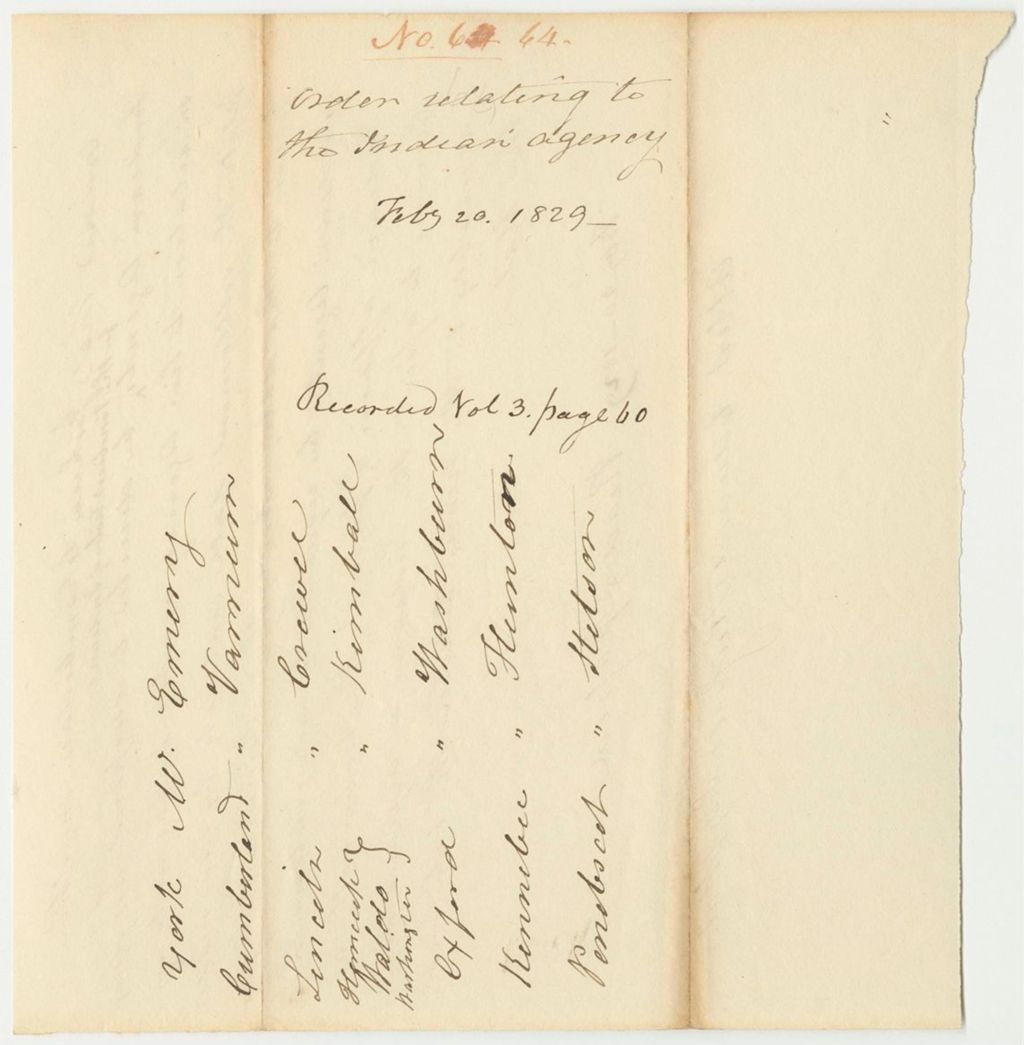 No. 64 64-
Order relating to
the Indian agency
Feby 20. 1829—
Recorded Vol 3. page 60
York M. Emery
Cumberland " Varnum
Lincoln " Crewel
Hancock }
Waldo } " Kimball
Washington }
Oxford " Washburn
Kennebec " Hunton
Penobscot " Stetson